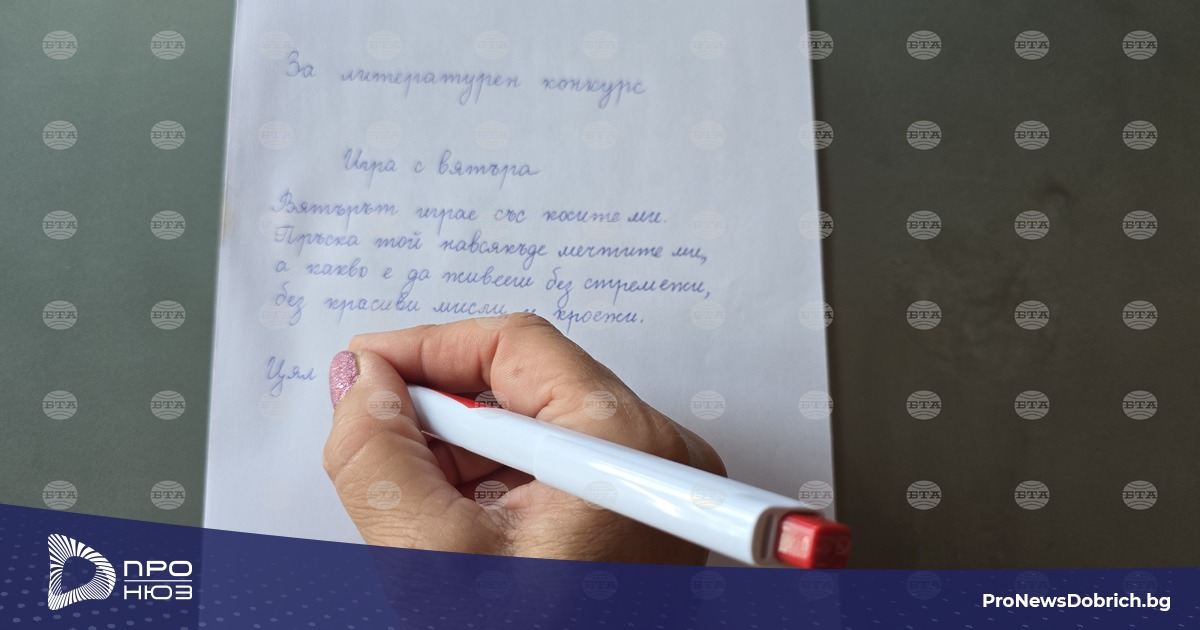 За литературен конкурс
Игра с вятъра
Вятърът играе със косите ми.
Пръска той навсякъде мечтите ми,
а какво е да живееш без стремежи,
без красиви мисли и кроежи.
Цял
БТА
ПРО
НЮЗ
ProNewsDobrich.bg